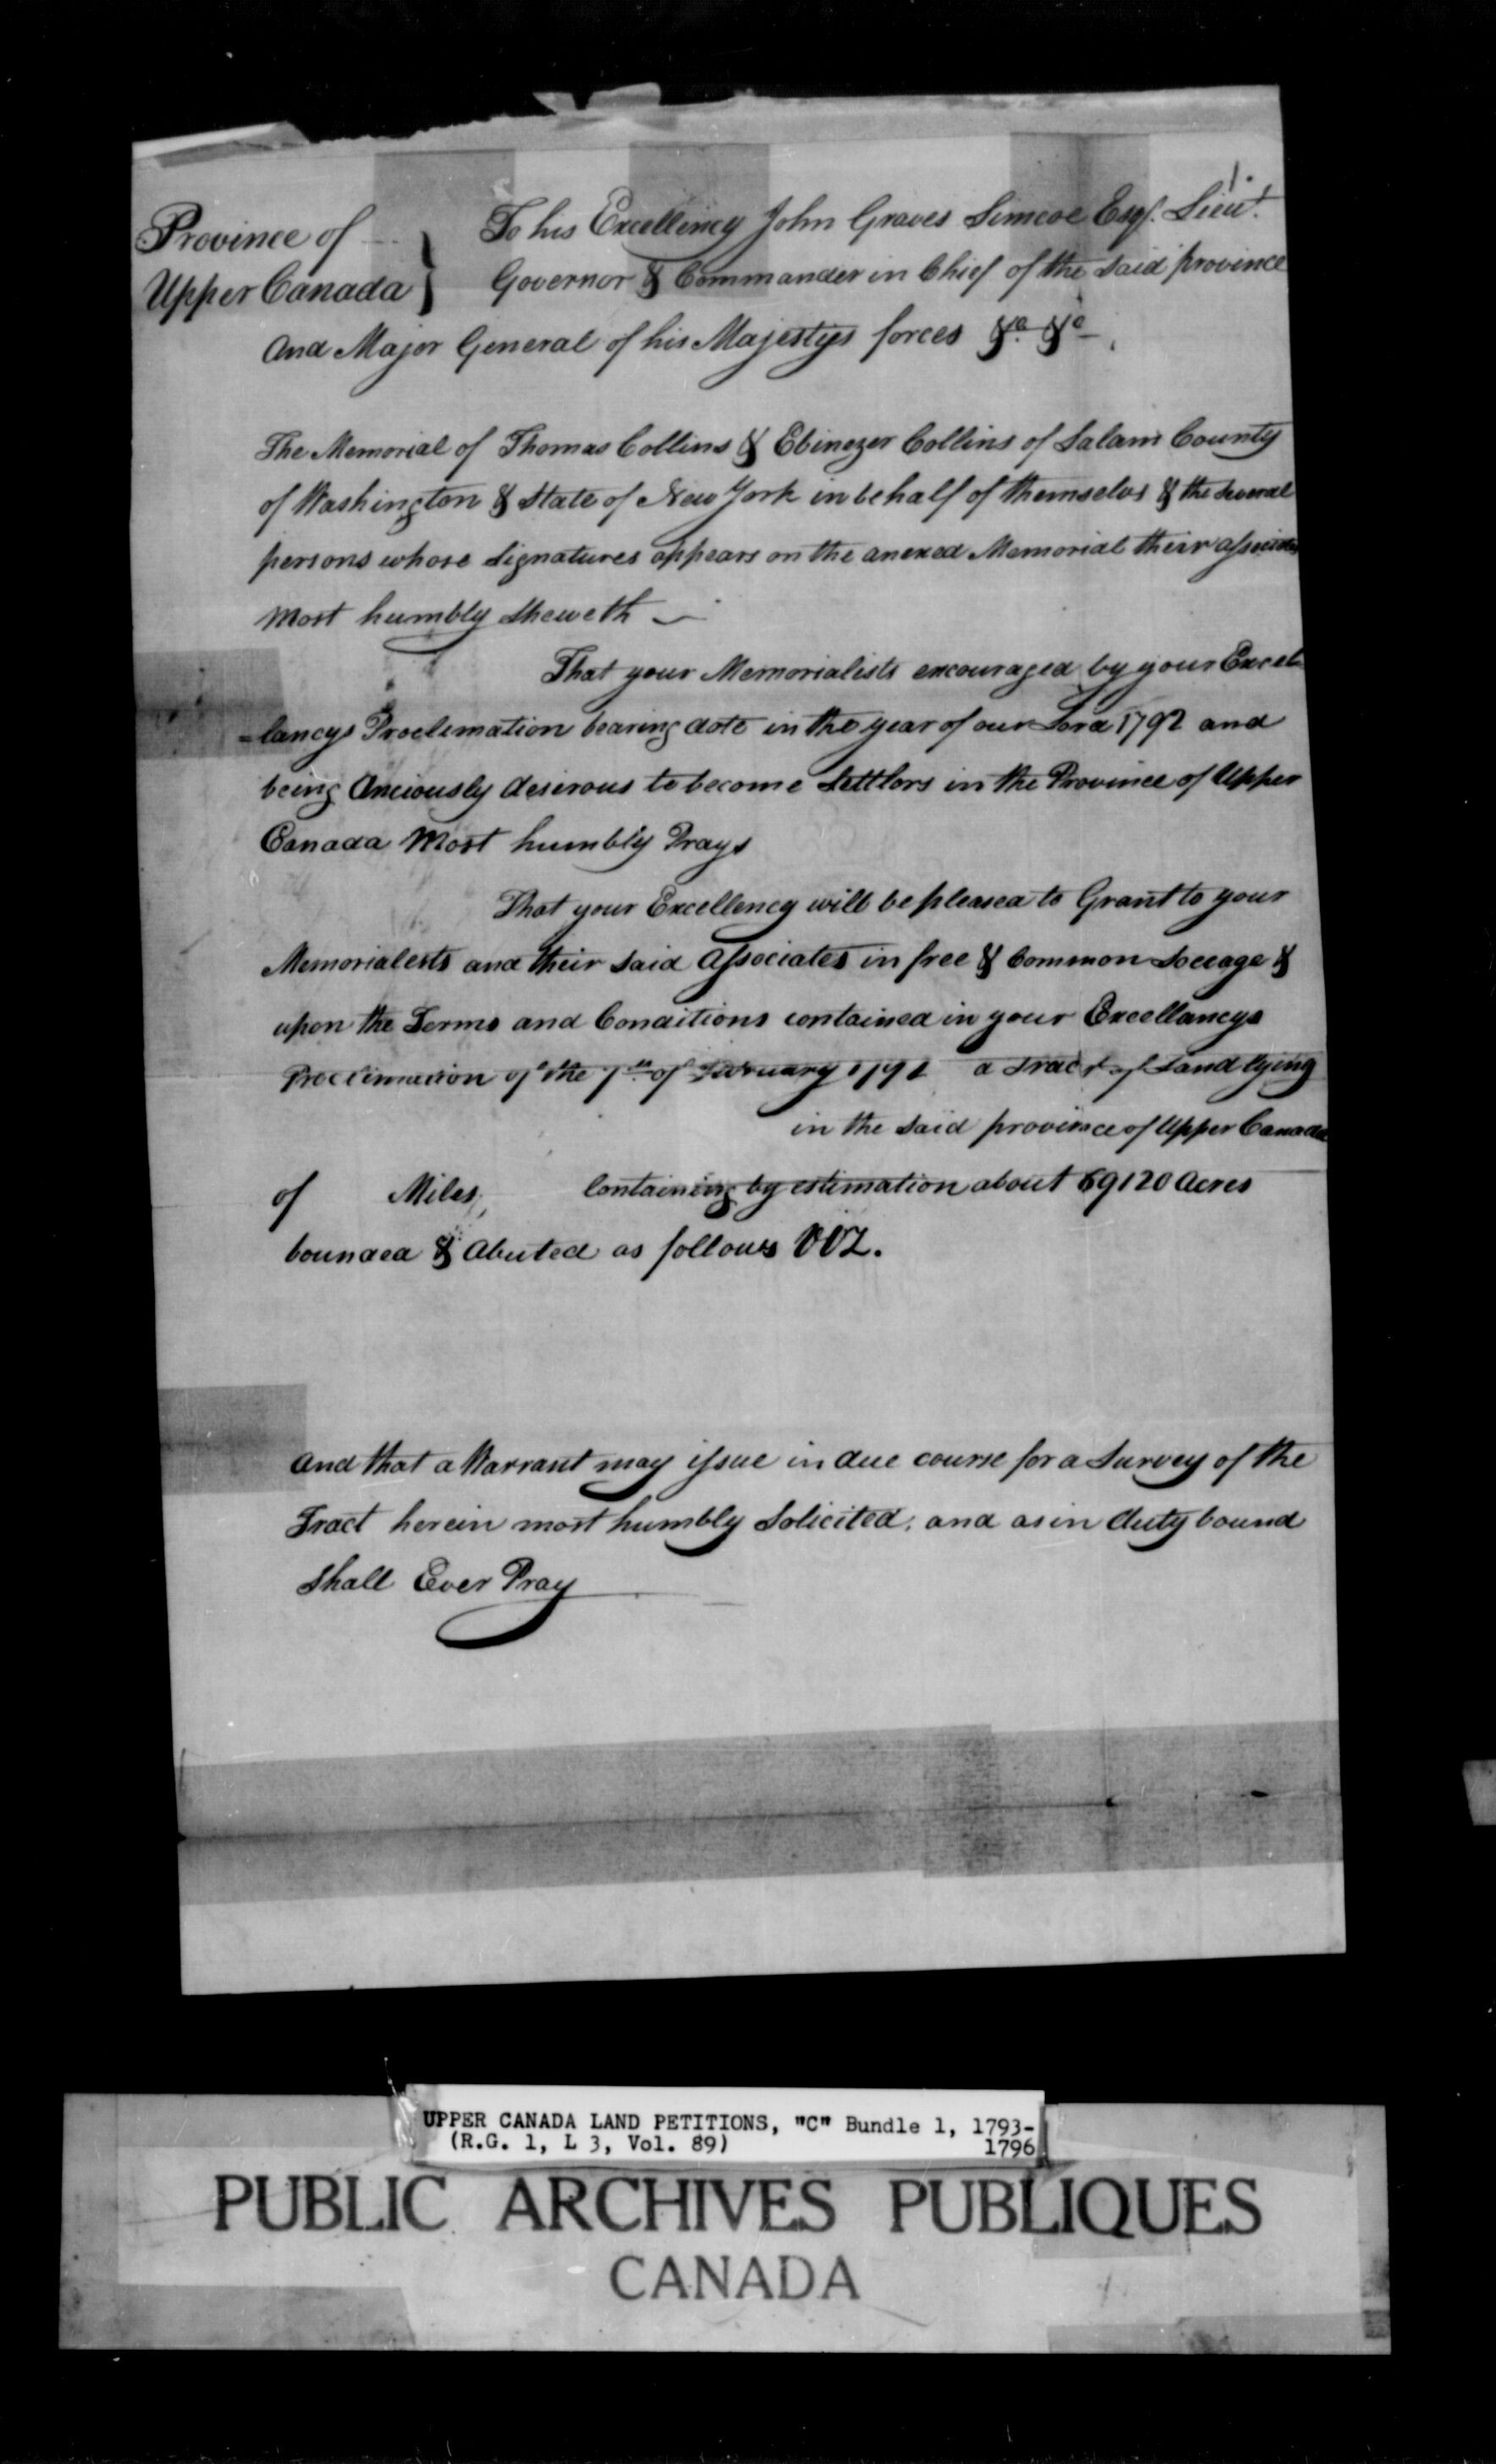 1.
Province of } To his Excellency John Graves Simcoe Esqr. Lieut.
Upper Canada } Governor & Commander in Chief of the said province
and Major General of his Majestys forces &c. &c.
The Memorial of Thomas Collins & Ebinezer Collins of Salam County
of Washington & State of New York in behalf of themselvs & the several
persons whose Signatures appears on the anexed Memorial their associates
Most humbly Sheweth
That your Memorialists encouraged by your Excel
=lancys Proclemation bearing date in the year of our Lord 1792 and
being Anciously desirous to become Settlors in the Province of Upper
Canada Most humbly Prays
That your Excellency will be pleased to Grant to your
Memorialests and their said Associates in free & Common Soccage &
upon the Terms and Conditions contained in your Excellancys
Proclimation of the 7th of February 1792 a Tract of Land lying
in the said province of Upper Canada
of Miles, Containing by estimation about 69120 Acres
bounded & Abuted as follows VIZ.
and that a Warrant may issue in due course for a Survey of the
Tract herein most humbly Solicited, and as in duty bound
Shall Ever Pray
UPPER CANADA LAND PETITIONS, "C" Bundle 1, 1793-
(R.G. 1, L 3, Vol. 89) 1796
PUBLIC ARCHIVES PUBLIQUES
CANADA